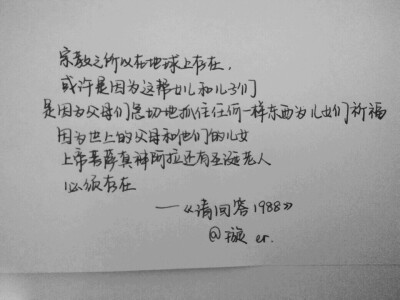 宗教之所以在地球上存在,
或许是因为这帮女儿和儿子们
是因为父母们急切地抓住任何一样东西为儿女们祈福
因为世上的父母和他们的儿女
上帝菩萨真神阿拉还有圣诞老人
必须存在
——《请回答1988》
@璇er.